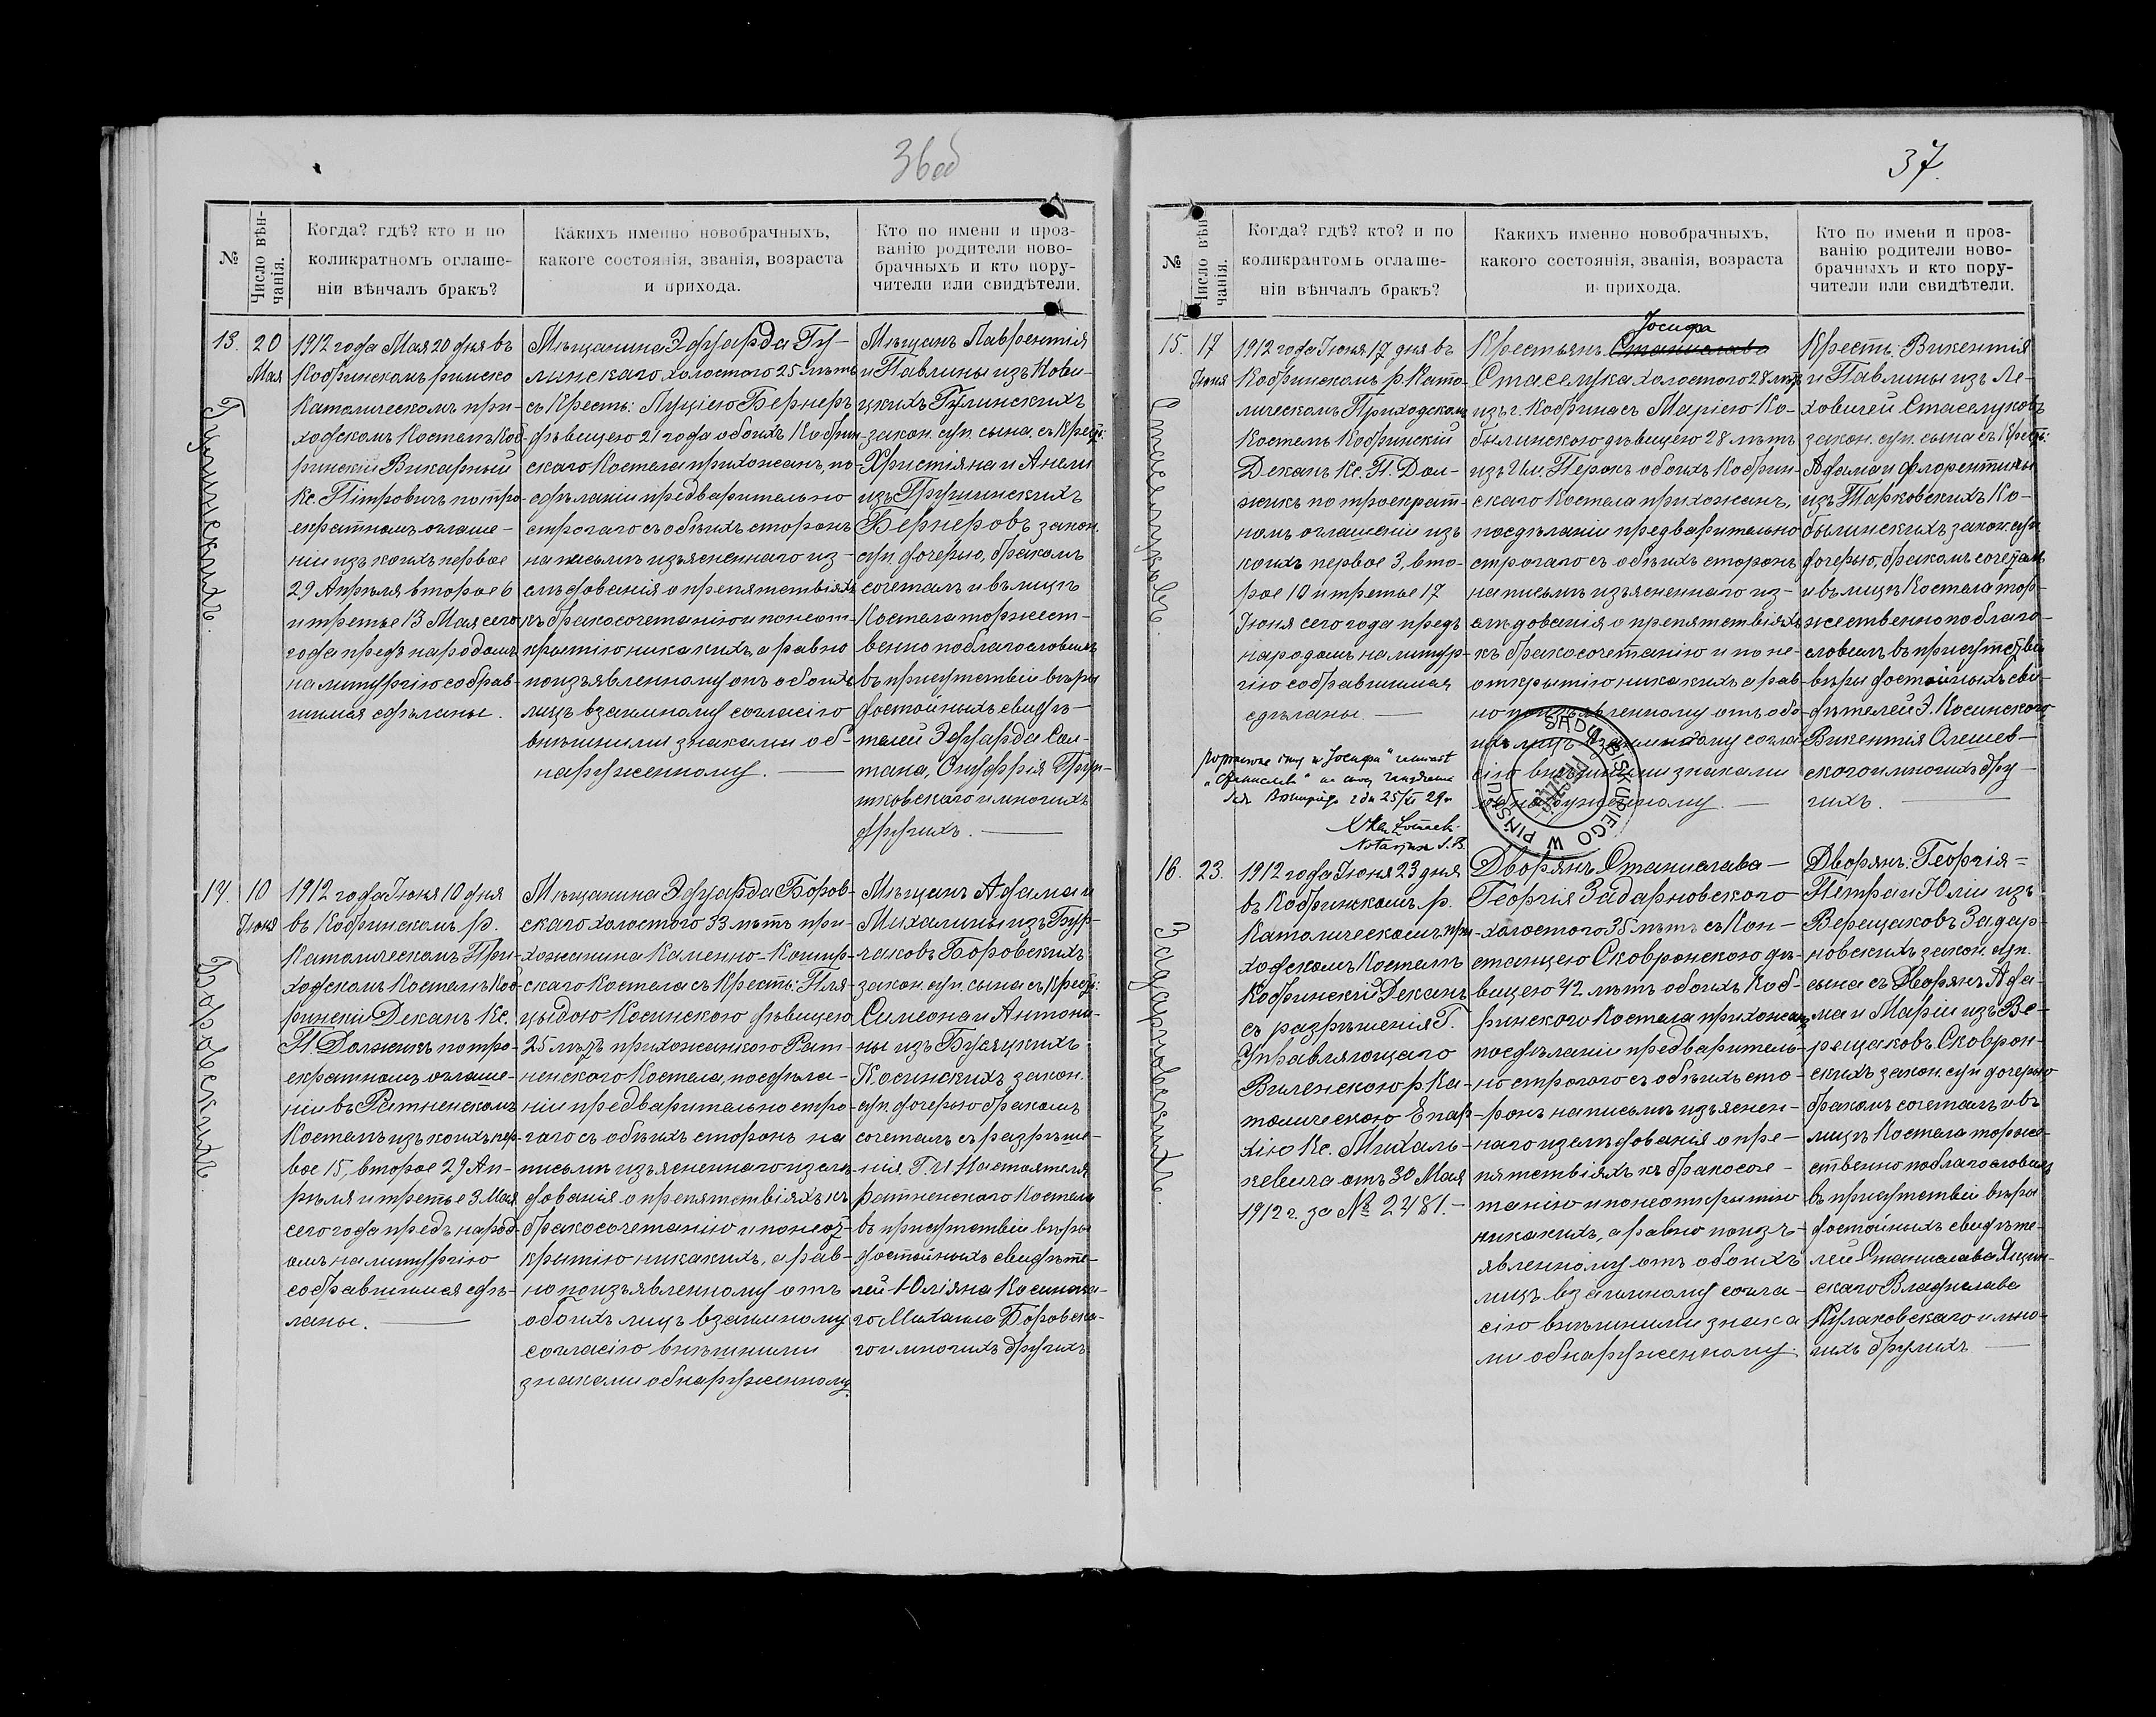 36об
№
Число вѣн-
чанія.
Когда? гдѣ? кто и по
коликратномъ оглаше-
ніи вѣнчалъ бракъ?
Какихъ именно новобрачныхъ,
какого состоянія, званія, возраста
и прихода.
Кто по имени и проз-
ванію родители ново-
брачныхъ и кто пору-
чители или свидѣтели.
13.
20
Мая
1912 года Мая 20 дня въ
Кобринскомъ римско
Католическомъ при-
ходскомъ Костелѣ Коб-
ринскій Викарный
Кс. Пітровичъ по тро
екратномъ оглаше-
ніи изъ коихъ первое
29 Апрѣля второе 6
и третье 13 Мая сего
года предъ народомъ
на литургію собрав-
шимся сдѣланы.
Мѣщанина Эдуарда Гу-
линскаго холостого 25 лѣтъ
съ Крестъ: Луціею Бернеръ
дѣвицею 21 года обоихъ Кобрин-
скаго Костела прихожанъ, по
сдѣланіи предварительно
строгаго съ обѣихъ сторонъ
на письмѣ изъясненнаго из-
слѣдованія о препятствіяхъ
къ бракосочетанію и по неот-
крытію никакихъ, а равно
по изъявленному отъ обоихъ
лицъ взаимному согласію
внѣшними знаками об-
наруженному.
Мѣщанъ Лаврентія
и Павлины изъ Нови-
цкихъ Гулинскихъ
закон. суп. сына, съ Крестъ:
Христіяна и Анели
изъ Грушинскихъ
Бернеровъ закон.
суп. дочерью, бракомъ
сочеталъ и въ лицѣ
Костела торжест-
венно поблагословилъ
въ присутствіи вѣры
достойныхъ свидѣ-
телей Эдуарда Сал-
тана, Онуфрія Грун-
тковскаго и многихъ
другихъ.
Гулинскихъ.
14.
10
Іюня
1912 года Іюня 10 дня
въ Кобринскомъ р.
Католическомъ При-
ходскомъ Костелѣ Коб
ринскій Деканъ Кс.
П. Должикъ по тро-
екратномъ оглаше-
ніи въ Ратненскомъ
Костелѣ изъ коихъ пер-
вое 15, второе 29 Ап-
рѣля и третье 3 Мая
сего года предъ народ-
омъ на литургію
собравшимся сдѣ-
ланы.
Мѣщанина Эдуарда Боров-
скаго холостого 33 лѣтъ при-
хожанина Каменно-Кошир-
скаго Костела съ Крестъ: Пля-
цыдою Косинскою дѣвицею
25 лѣтъ прихожанкою Рат-
ненскаго Костела, по сдѣла-
ніи предварительно стро-
гаго съ обѣихъ сторонъ на
письмѣ изъясненнаго излѣ-
дованія о препятствіяхъ къ
бракосочетанію и по неот-
крытію никакихъ, а рав-
но по изъявленному отъ
обоихъ лицъ взаимному
согласію внѣшними
знаками обнаруженному.
Мѣщанъ Адама и
Михалины изъ Бур-
чаковъ Боровскихъ
закон. суп. сына съ Крестъ:
Симеона и Антони-
ны изъ Бусяцкихъ
Косинскихъ закон.
суп. дочерью бракомъ
сочеталъ съ разрѣше-
нія, Г. И Настоятеля
ратненскаго Костела
въ присутствіи вѣры
достойныхъ свидѣте-
лей Юліяна Косинска-
го Михаила Боровска-
го и многихъ другихъ
Боровскихъ
37.
№
Число вѣн
чанія.
Когда? гдѣ? кто? и по
коликрантомъ оглаше-
ніи вѣнчалъ бракъ?
Какихъ именно новобрачныхъ,
какого состоянія, званія, возраста
и прихода.
Кто по имени и проз-
ванію родители ново-
брачныхъ и кто пору-
чители или свидѣтели.
15.
17
Іюня
1912 года Іюня 17 дня въ
Кобринскомъ р. Като-
лическомъ Приходскомъ
Костелѣ Кобринскій
Деканъ Кс. П. Дол-
жикъ по троекрат-
номъ оглашеніи изъ
коихъ первое 3, вто-
рое 10 и третье 17
Іюня сего года предъ
народомъ на литур-
гію собравшимся
сдѣланы.
Іосифа
Крестьянъ Станислава
Стаселука холостого 28 лѣтъ
изъ г. Кобрина съ Маріею Ко-
былинскою дѣвицею 28 лѣтъ
изъ Им Перокъ обоихъ Кобрин-
скаго Костела прихожанъ,
по сдѣланіи предварительно
строгаго съ обѣихъ сторонъ
на письмѣ изъясненнаго из-
слѣдованія о препятствіяхъ
къ бракосочетанію и по не-
открытію никакихъ а рав
но по изъявленному отъ обо
ихъ лицъ взаимному согла
сію внѣшними знаками
обнаруженному.
Крестъ: Викентія
и Павлины изъ Ле-
ховичей Стаселуковъ
закон. суп. сына съ Крестъ:
Адама и Флорентины
изъ Тарковскихъ Ко-
былинскихъ закон. суп.
дочерью, бракомъ сочеталъ
и въ лицѣ Костела тор-
жественно поблаго-
словилъ въ присутствіи
вѣры достойныхъ сви-
дѣтелей Э. Косинского
Викентія Олешев-
скаго и многихъ дру-
гихъ.
"Іосифа" zamiast
25/II 29 r.
Notarjusz S.B.
SĄDU BISKUPIEGO W PIŃSKU
Стаселуковъ.
16.
23.
1912 года Іюня 23 дня
въ Кобринскомъ р.
Католическомъ при-
ходскомъ Костелѣ
Кобринскій Деканъ
съ разрѣшенія Г.
Управляющаго
Виленскою р. Ка-
толическою Епар-
хіею Кс. Михаль-
кевича отъ 30 Мая
1912 г. за № 2481.
Дворянъ Станислава-
Георгія Задарновского
холостого 35 лѣтъ съ Кон-
станцею Сковронскою дѣ-
вицею 42 лѣтъ обоихъ Коб-
ринского Костела прихожанъ
по сдѣланіи предваритель-
но строгаго съ обѣихъ сто-
ронъ на письмѣ изъяснен-
наго излѣдованія о пре-
пятствіяхъ къ бракосоче-
танію и по неоткрытію
никакихъ, а равно по изъ-
явленному отъ обоихъ
лицъ взаимному согла-
сію внѣшними знака
ми обнаруженному.
Дворянъ Георгія-
Петра и Юліи изъ
Верещаковъ Задар-
новскихъ закон. суп.
сына съ Дворянъ Ада-
ма и Маріи изъ Ве-
рещаковъ Сковрон-
скихъ закон. суп дочерью
бракомъ сочеталъ и въ
лицѣ Костела торже-
ственно поблагословилъ
въ присутствіи вѣры
достойныхъ свидѣте-
лей Станислава
скаго Владислава
Кулаковскаго и мно-
гихъ другихъ
Задарновскихъ.